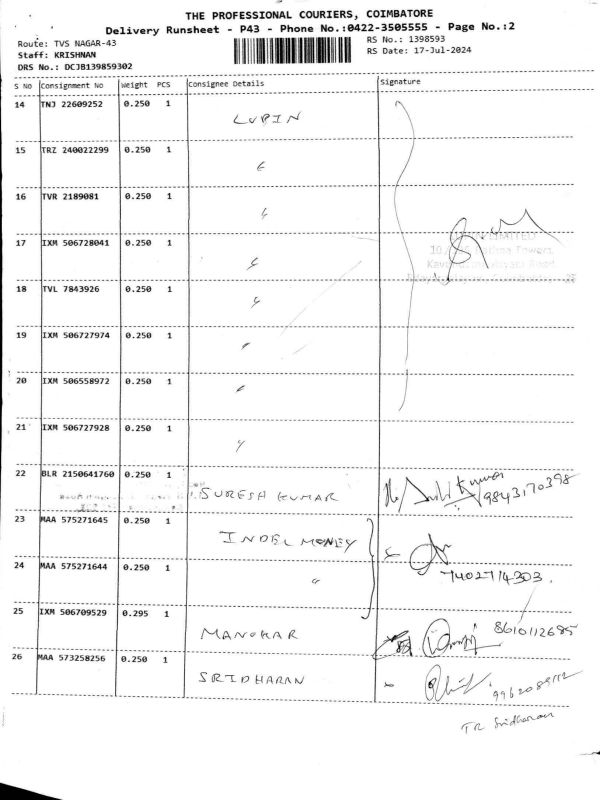 THE PROFESSIONAL COURIERS, COIMBATORE
Delivery Runsheet - P43 - Phone No.:0422-3505555 - Page No.:2
Route: TVS NAGAR-43
RS No.: 1398593
Staff: KRISHNAN
RS Date: 17-Jul-2024
DRS No.: DCJB139859302
S No Consignment No Weight PCS Consignee Details Signature
14 TNJ 22609252 0.250 1 LUPIN
15 TRZ 240022299 0.250 1 "
16 TVR 2189081 0.250 1 "
17 IXM 506728041 0.250 1 "
18 TVL 7843926 0.250 1 "
19 IXM 506727974 0.250 1 "
20 IXM 506558972 0.250 1 "
21 IXM 506727928 0.250 1 "
22 BLR 2150641760 0.250 1 SURESH KUMAR
9843170398
23 MAA 575271645 0.250 1 INDEL MONEY
24 MAA 575271644 0.250 1 "
7402714303.
25 IXM 506709529 0.295 1 MANOKAR 8610112685
26 MAA 573258256 0.250 1 SRIDHARAN
TR Sridharan